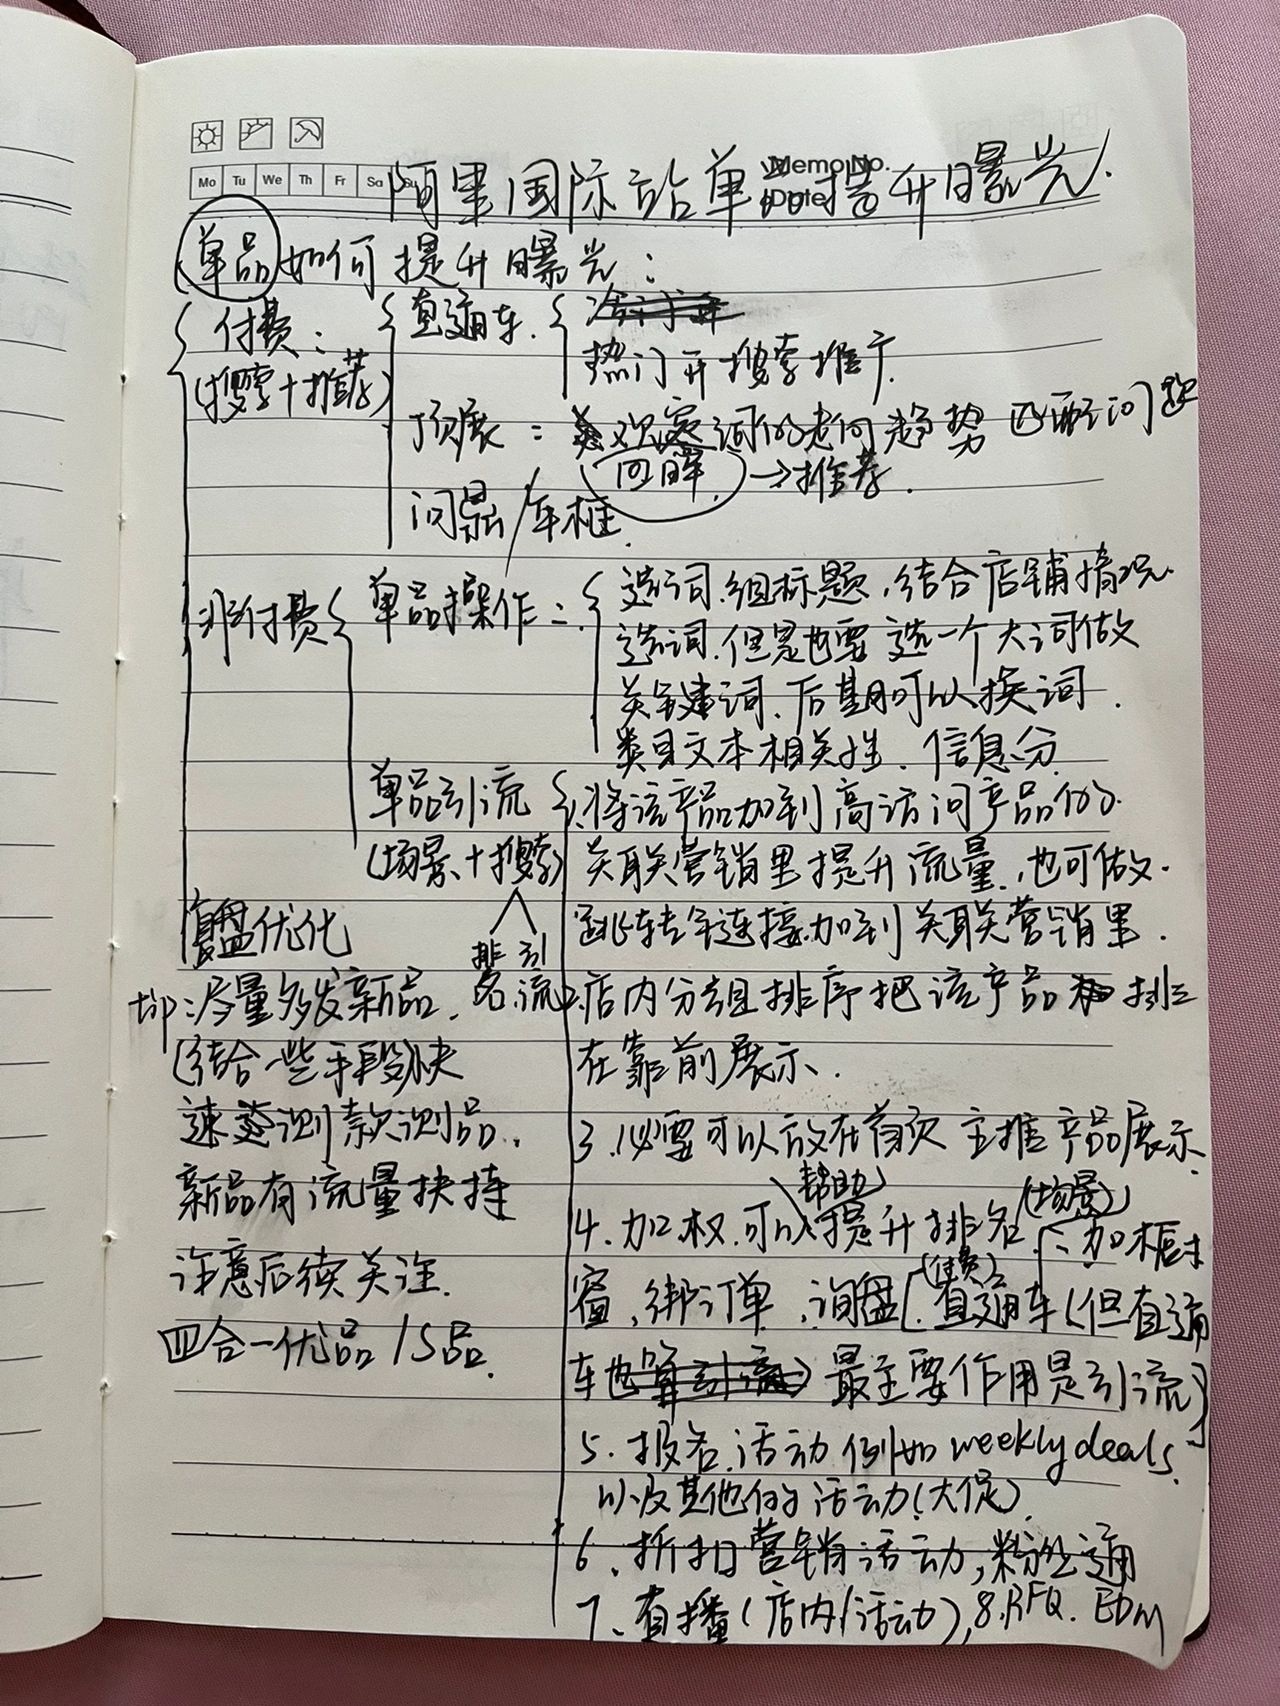 Memo No.
Mo Tu We Th Fr Sa Su
Date
阿里国际站单品提升曝光.
单品如何提升曝光:
付费:
(搜索+推荐)
直通车.
热门开搜索推广.
顶展: 观察词的走向趋势 匹配问题
回眸 →推荐.
问鼎/车框.
非付费
单品操作:
选词.组标题,结合店铺情况
选词.但是也要选一个大词做
关键词.后期可以换词.
类目文本相关性.信息分.
单品引流
(场景+搜索)
排名 引流
1.将该产品加到高访问产品的
关联营销里提升流量,也可做
跳转连接加到关联营销里.
2.店内分组排序把该产品排
在靠前展示.
3.必要可以放在首页主推产品展示.
4.加权.可以帮助提升排名(场景)、加橱
窗,绑订单,询盘(付费)直通车(但直通
车最主要作用是引流)
5.报名活动例如weekly deals.
以及其他的活动(大促)
6.折扣营销活动,粉丝通
7.直播(店内/活动),8.RFQ. EDM
复盘优化
:尽量多发新品.
(结合一些手段)快
速测款测品.
新品有流量扶持
注意后续关注.
四合一优品/S品.